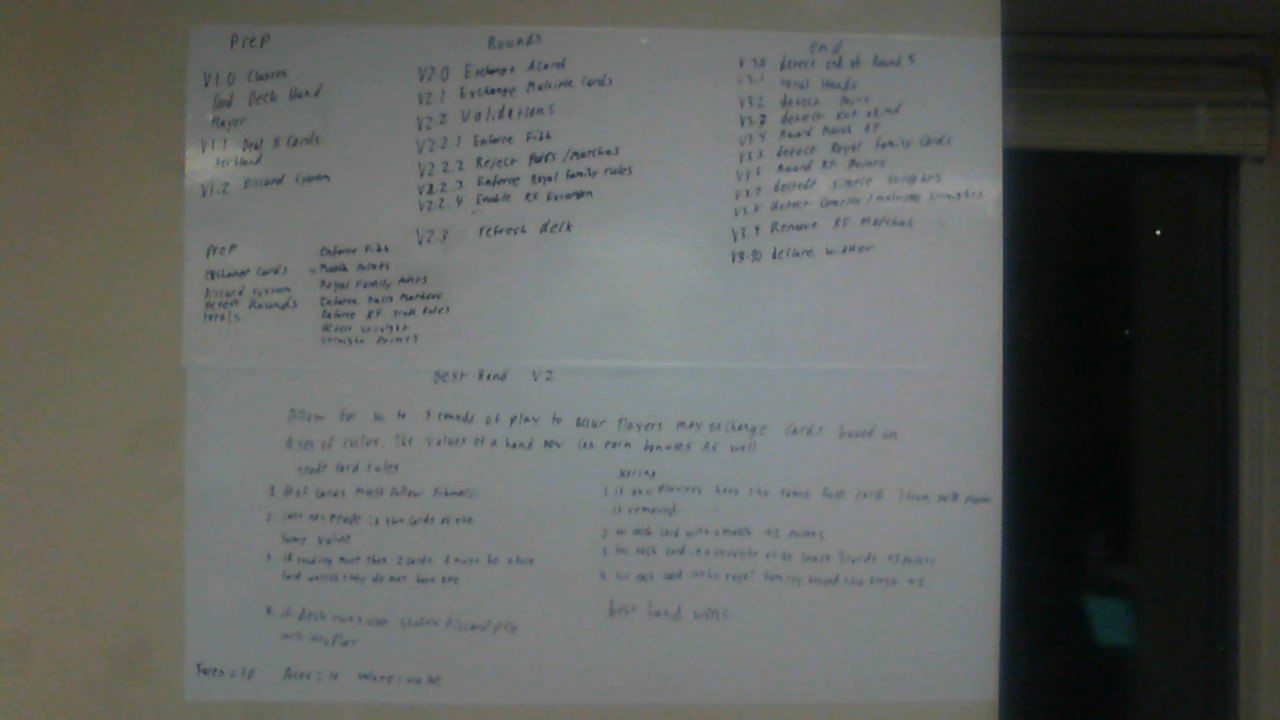 Prep
V1.0 Classes
Card Deck Hand
Player
V1.1 Deal 5 Cards
Per Hand
V1.2 Discard System
Rounds
V2.0 Exchange A Card
V2.1 Exchange Multiple Cards
V2.2 Validations
V2.2.1 Enforce Fibb
V2.2.2 Reject Pairs/Matches
V2.2.3 Enforce Royal Family rules
V2.2.4 Enable RF
V2.3 refresh deck
End
V3.0 detect end of Round 5
V3.1 total Hands
V3.2 detect Pairs
detect
V3.4 Award Match
V3.5 detect Royal Family Cards
V3.6 Award RF Points
V3.7 detect simple straights
V3.8 detect Complex/multiple straights
V3.9 Remove RF Matches
declare winner
Prep
exchange Cards
Discard System
Detect Rounds
totals
Enforce Fibb
Match Points
Royal Family
Enforce Matches
Enforce RF Rules
detect straight
straight Points
Best Hand V2
Allow for up to 5 rounds of play to occur Players may exchange cards based on
A set of rules. The values of a hand now can earn bonuses AS well
trade card rules
1. # of Cards Must follow
2. trade in two cards of the
Same Value
3. If trading more than 2 cards
card unless they do not have one
4. If deck runs out discard pile
scoring
1. if players have the same card 1 from each player
is removed
2. for each card with a match +2 points
3. for each card in a straight of at least 3 cards +3 points
4. for each card in the royal family +5
best hand wins
Faces = 10 Aces = 11 value